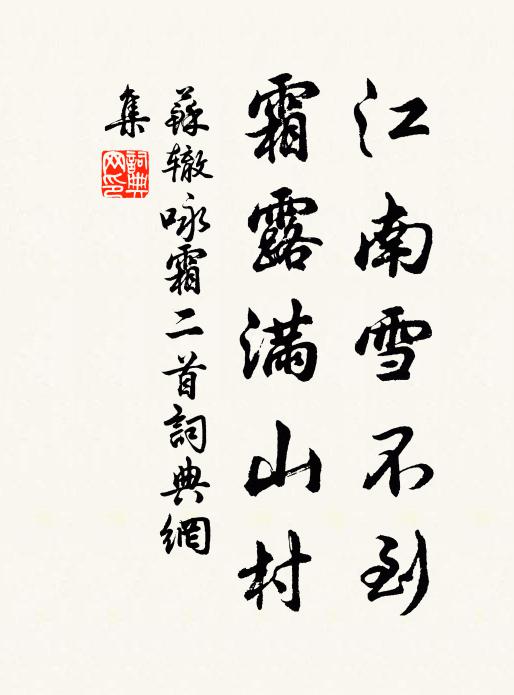 江南雪不到
霜露满山村
蘇辙咏霜二首詞典網
集
詞典
网印